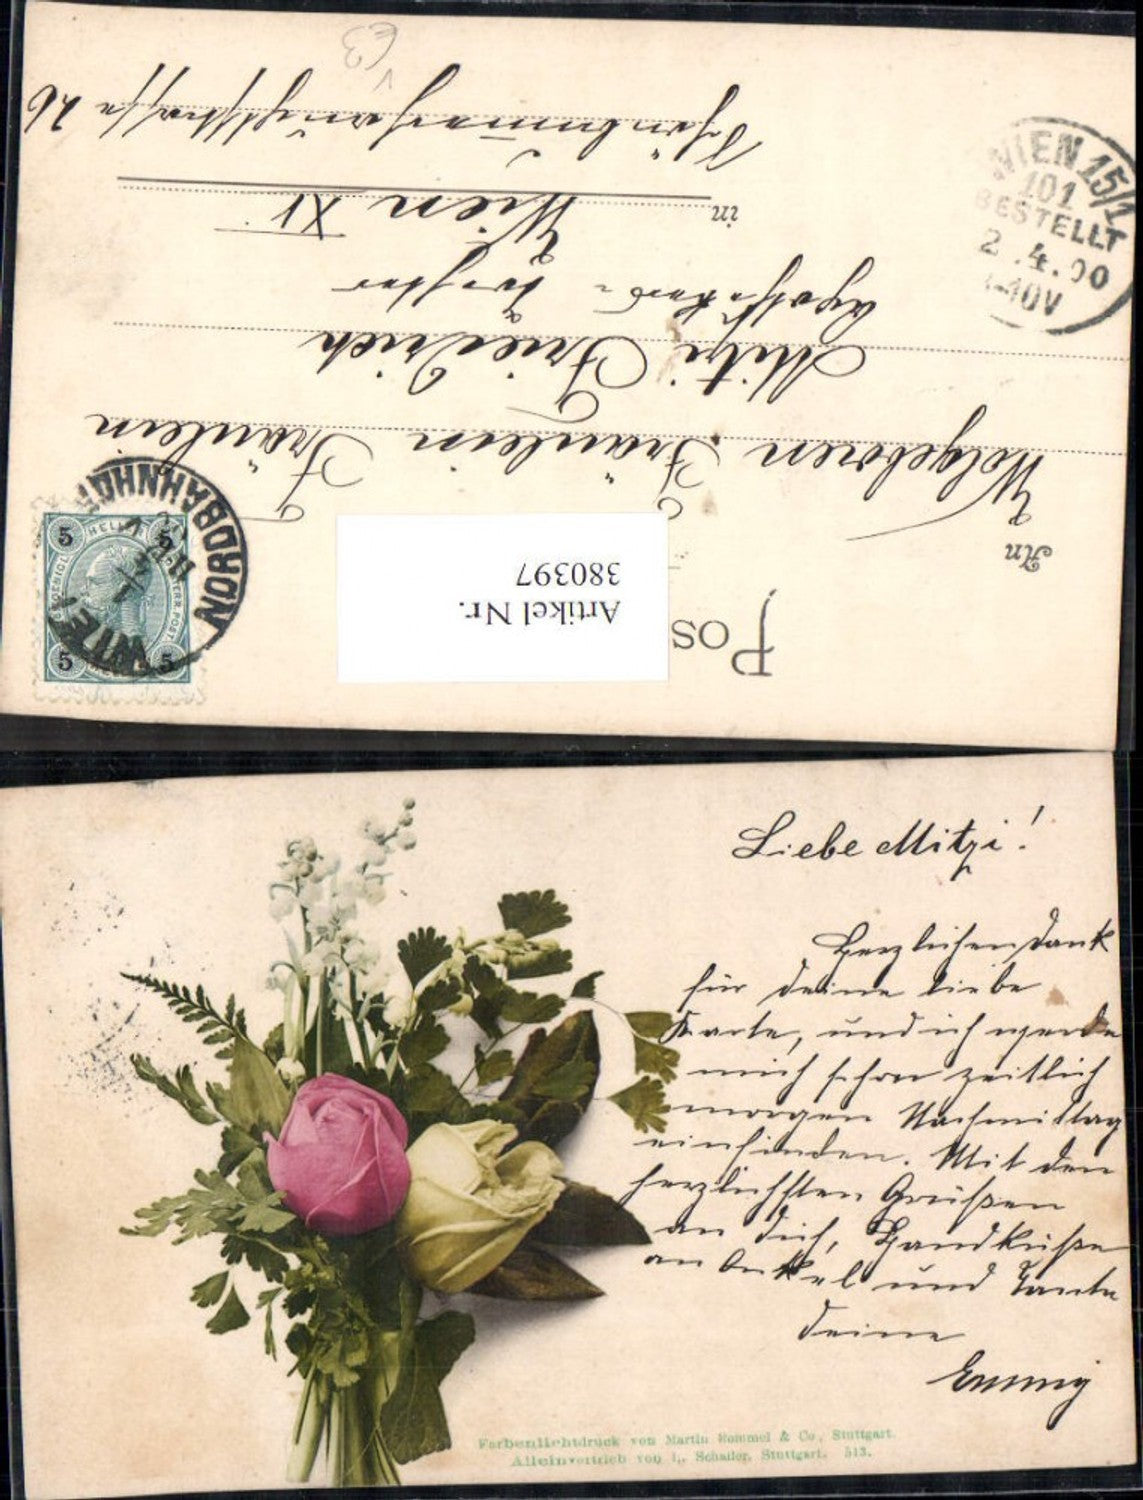 An
Wolgeboren Fräulein Fräulein
Mitzi Friedrich
Apothekers
in Wien XV
26
Pos
Artikel Nr.
380397
WIEN 15/1
101
BESTELLT
2.4.00
-10V
WIEN
NORDBAHNHOF
5 HELLER 5
5 5
Liebe Mitzi!
Herzlichen Dank
für deine liebe
Karte, und ich werde
mich schon zeitlich
morgen Nachmittag
einfinden. Mit den
herzlichsten Grüßen
an dich, Handküße
an Onkel und Tante
deine
Emmy
Farbenlichtdruck von Martin Rommel & Co, Stuttgart.
Alleinvertrieb von L. Schaller, Stuttgart. 513.